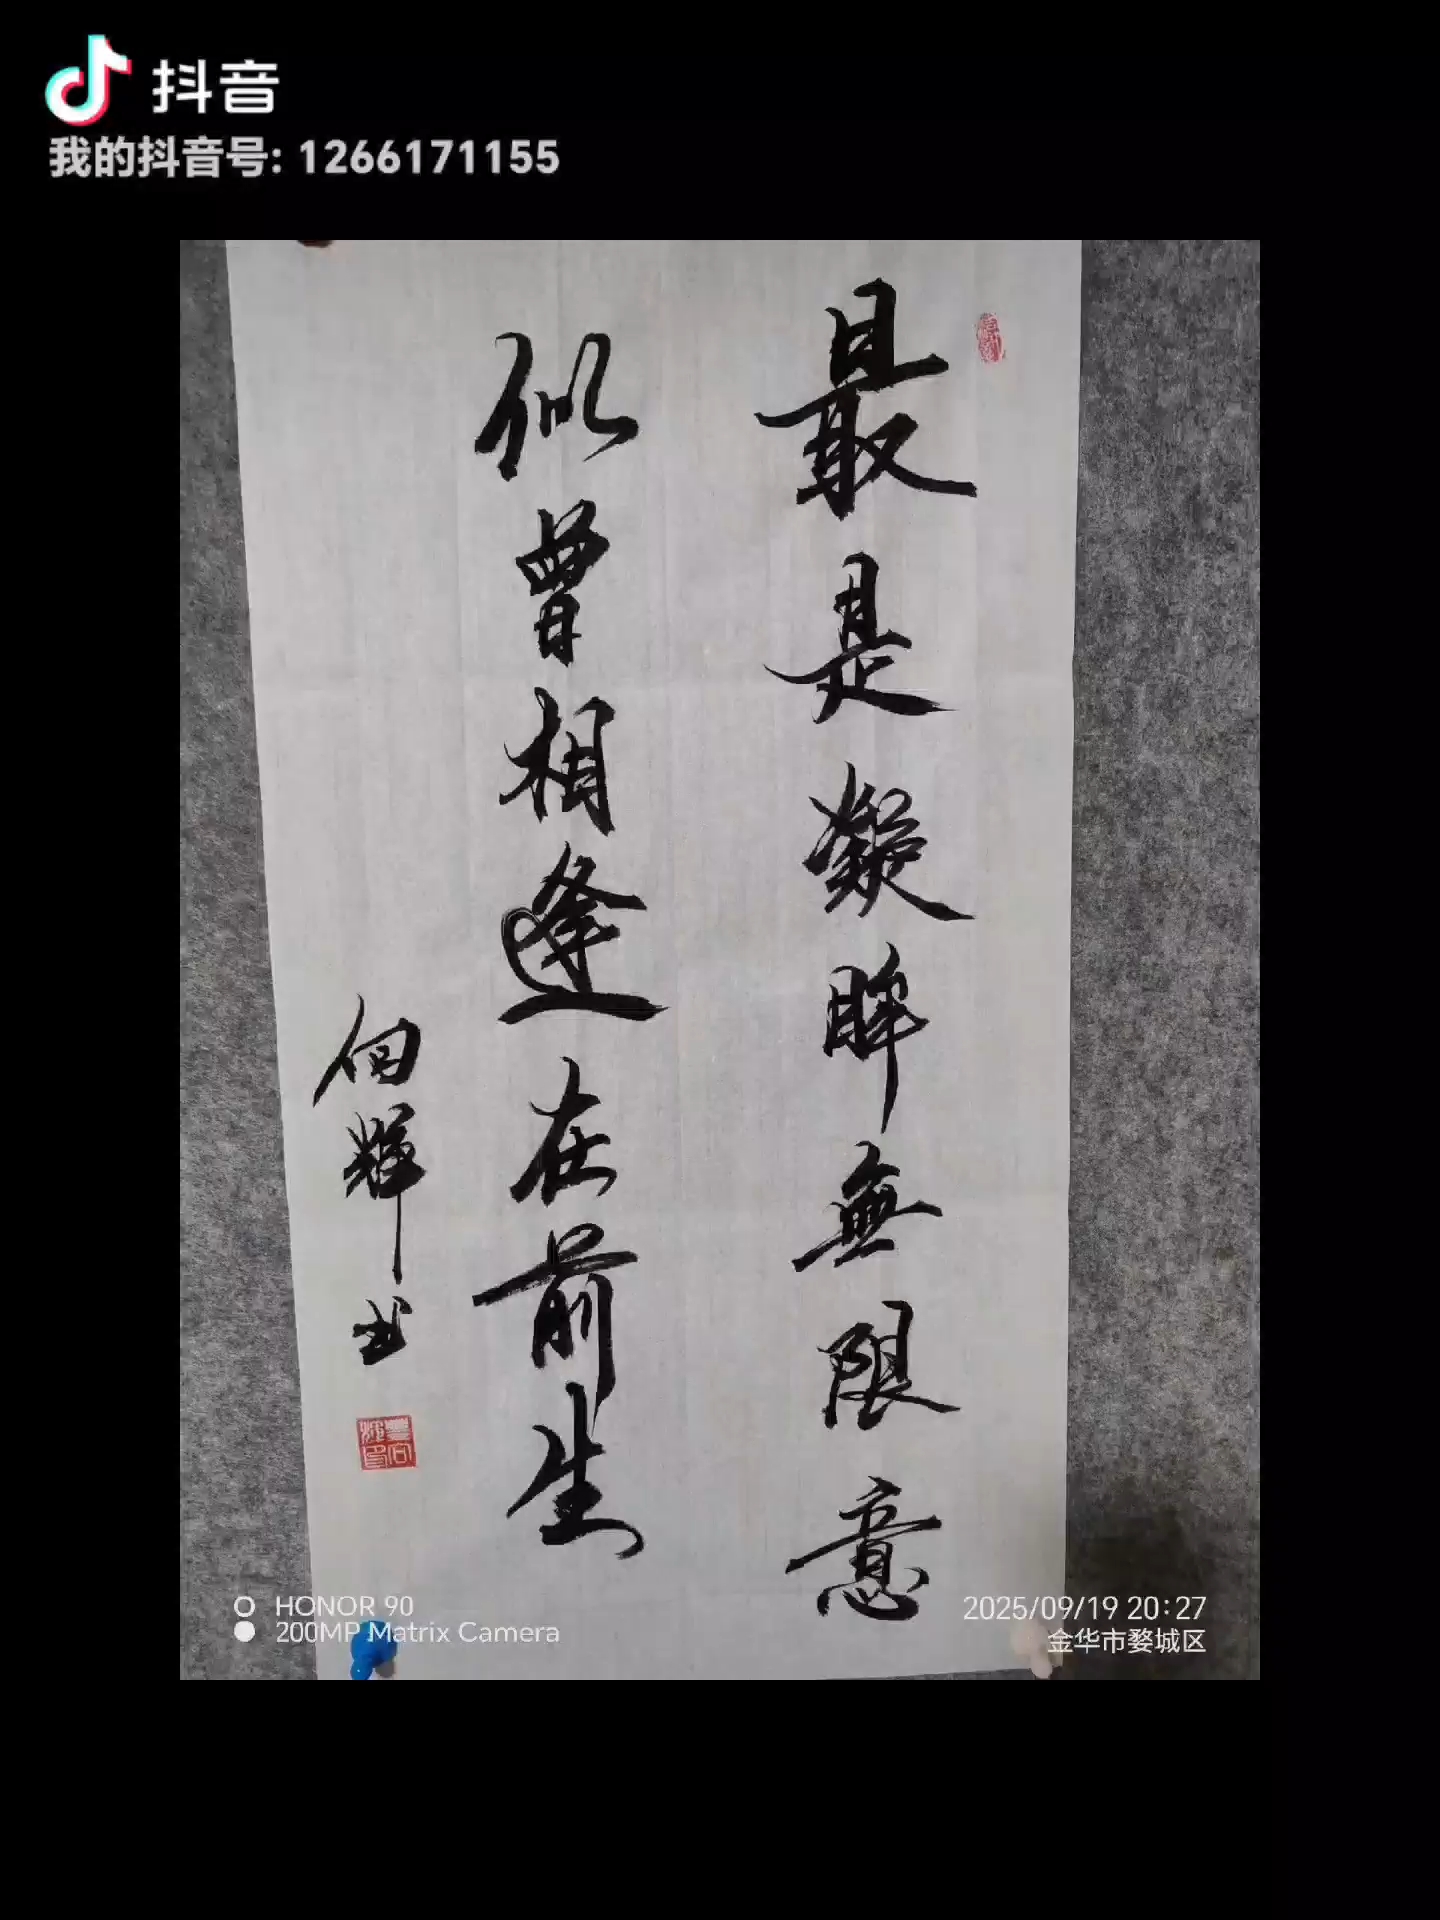 抖音
我的抖音号: 1266171155
最是凝眸無限意
似曾相逢在前生
向輝书
HONOR 90
200MP Matrix Camera
2025/09/19 20:27
金华市婺城区